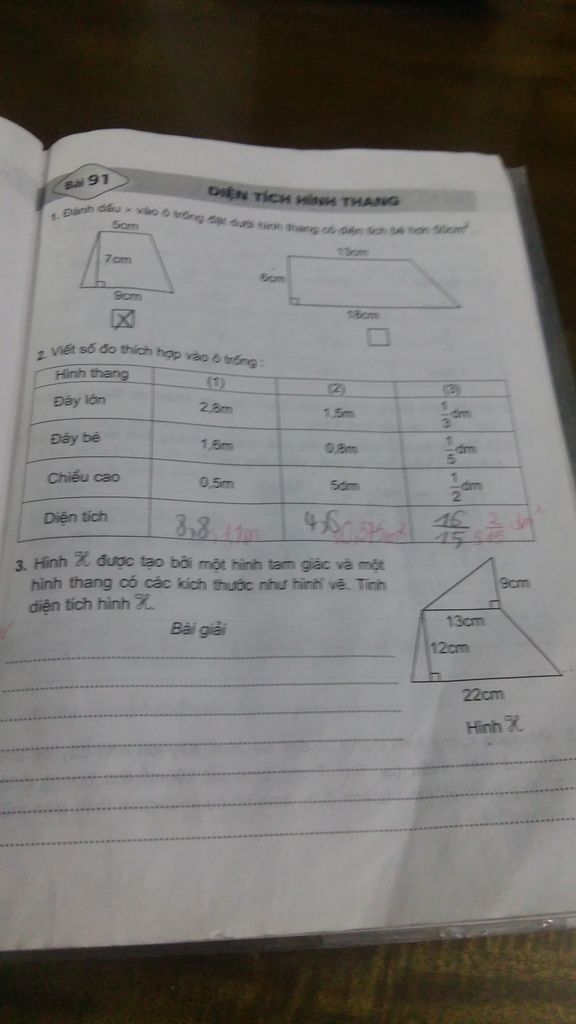 Bài 91
DIỆN TÍCH HÌNH THANG
1. Đánh dấu × vào ô trống đặt dưới hình thang có diện tích bé hơn 50cm².
5cm
7cm
9cm
X
13cm
6cm
18cm
2. Viết số đo thích hợp vào ô trống :
Hình thang (1) (2) (3)
Đáy lớn 2,8m 1,5m 1/3 dm
Đáy bé 1,6m 0,8m 1/5 dm
Chiều cao 0,5m 5dm 1/2 dm
Diện tích 8,8 4,6 16/15
3. Hình H được tạo bởi một hình tam giác và một
hình thang có các kích thước như hình vẽ. Tính
diện tích hình H.
Bài giải
9cm
13cm
12cm
22cm
Hình H